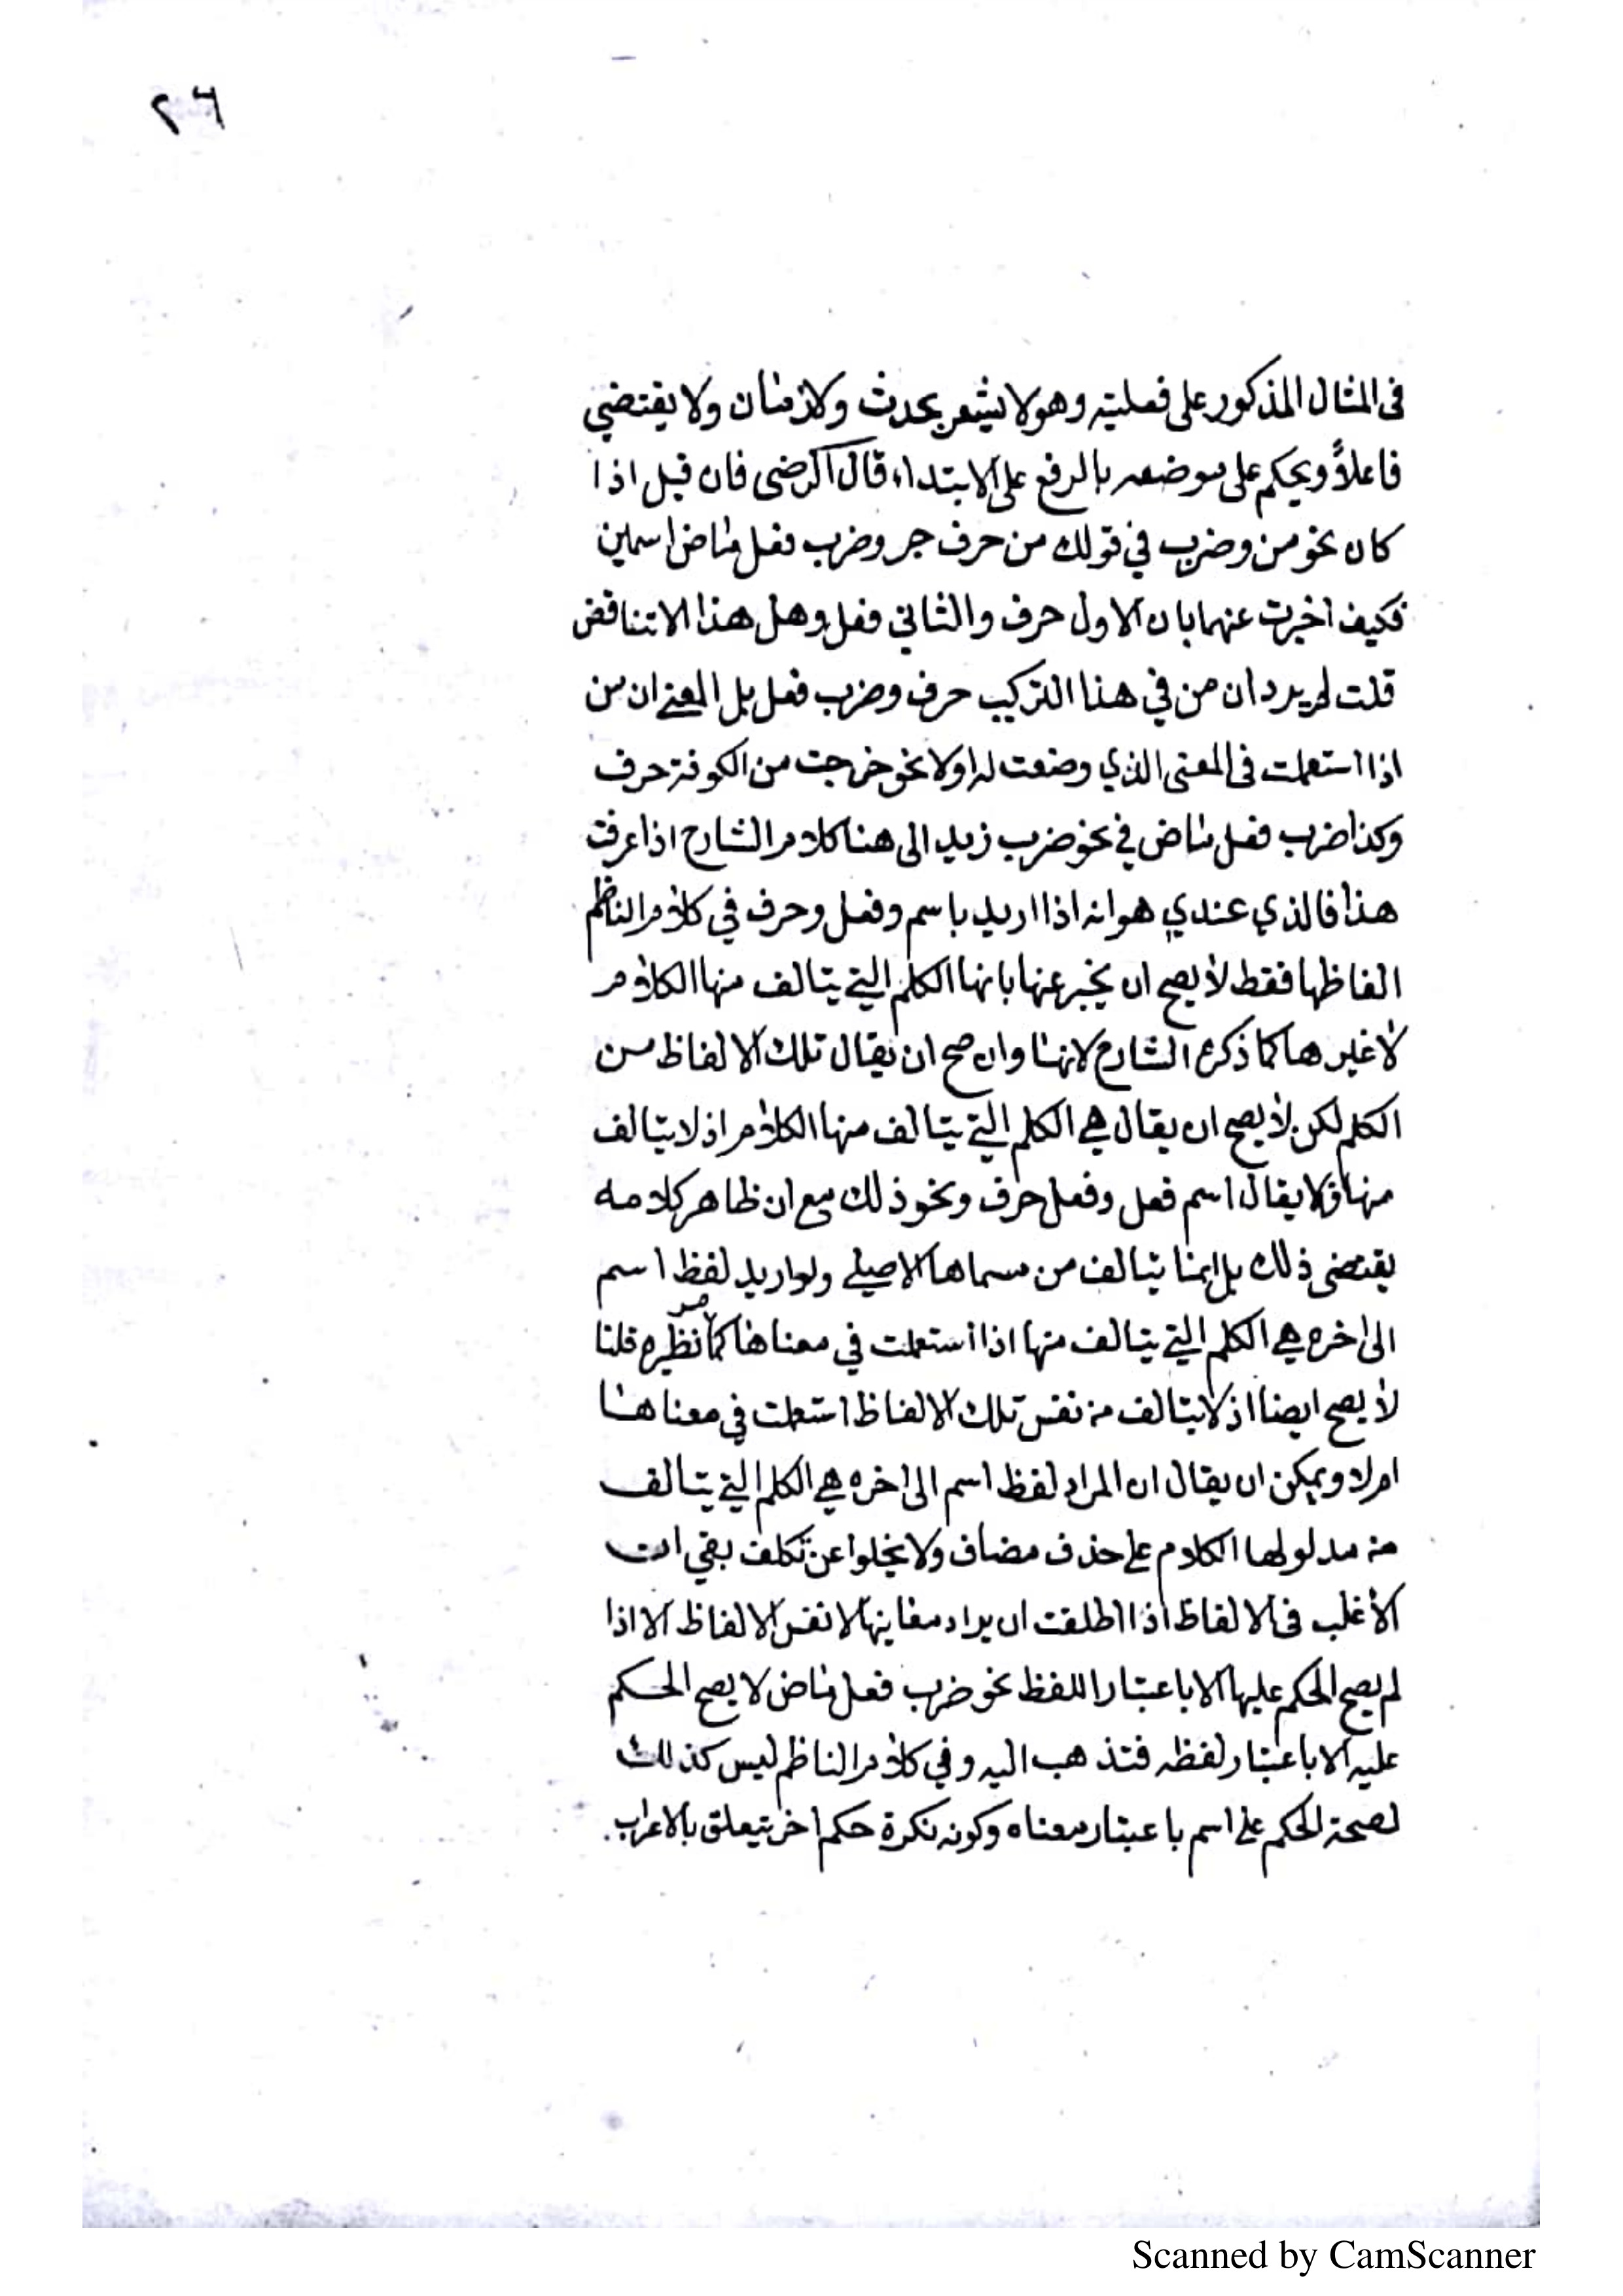 ٢٦
فى المثال المذكور على فعليته وهو لا يشعر بحدث ولا زمان ولا يقتضي
فاعلاً ويحكم على موضعه بالرفع على الابتداء قال الرضى فان قيل اذا
كان نحو من وضرب في قولك من حرف جر وضرب فعل ماض اسمين
فكيف اخبرت عنهما بان الاول حرف والثاني فعل وهل هذا الا تناقض
قلت لم يرد ان من في هذا التركيب حرف وضرب فعل بل المعنى ان من
اذا استعملت فى المعنى الذي وضعت له اولا نحو خرجت من الكوفة حرف
وكذا ضرب فعل ماض في نحو ضرب زيد الى هنا كلام الشارح اذا عرفت
هذا فالذي عندي هو انه اذا اريد باسم وفعل وحرف في كلام الناظم
الفاظها فقط لا يصح ان يخبر عنها بانها الكلم التي يتالف منها الكلام
لا غيرها كما ذكره الشارح لانها وان صح ان يقال تلك الالفاظ من
الكلم لكن لا يصح ان يقال هي الكلم التي يتالف منها الكلام اذ لا يتالف
منها فلا يقال اسم فعل وفعل حرف ونحو ذلك مع ان ظاهر كلامه
يقتضى ذلك بل انما يتالف من مسماها الاصلي ولو اريد لفظ اسم
الى اخره هي الكلم التي يتالف منها اذا استعملت في معناها كما مر نظيره قلنا
لا يصح ايضا اذ لا يتالف من نفس تلك الالفاظ استعملت في معناها
ام لا ويمكن ان يقال ان المراد لفظ اسم الى اخره هي الكلم التي يتالف
من مدلولها الكلام على حذف مضاف ولا يخلوا عن تكلف بقي ان
الأغلب فى الالفاظ اذا اطلقت ان يراد معاينها لا نفس الالفاظ الا اذا
لم يصح الحكم عليها الا باعتبار اللفظ نحو ضرب فعل ماض لا يصح الحكم
عليه الا باعتبار لفظه فتذهب اليه وفي كلام الناظم ليس كذلك
لصحة الحكم على اسم باعتبار معناه وكونه نكرة حكم اخر يتعلق بالاعراب.
Scanned by CamScanner